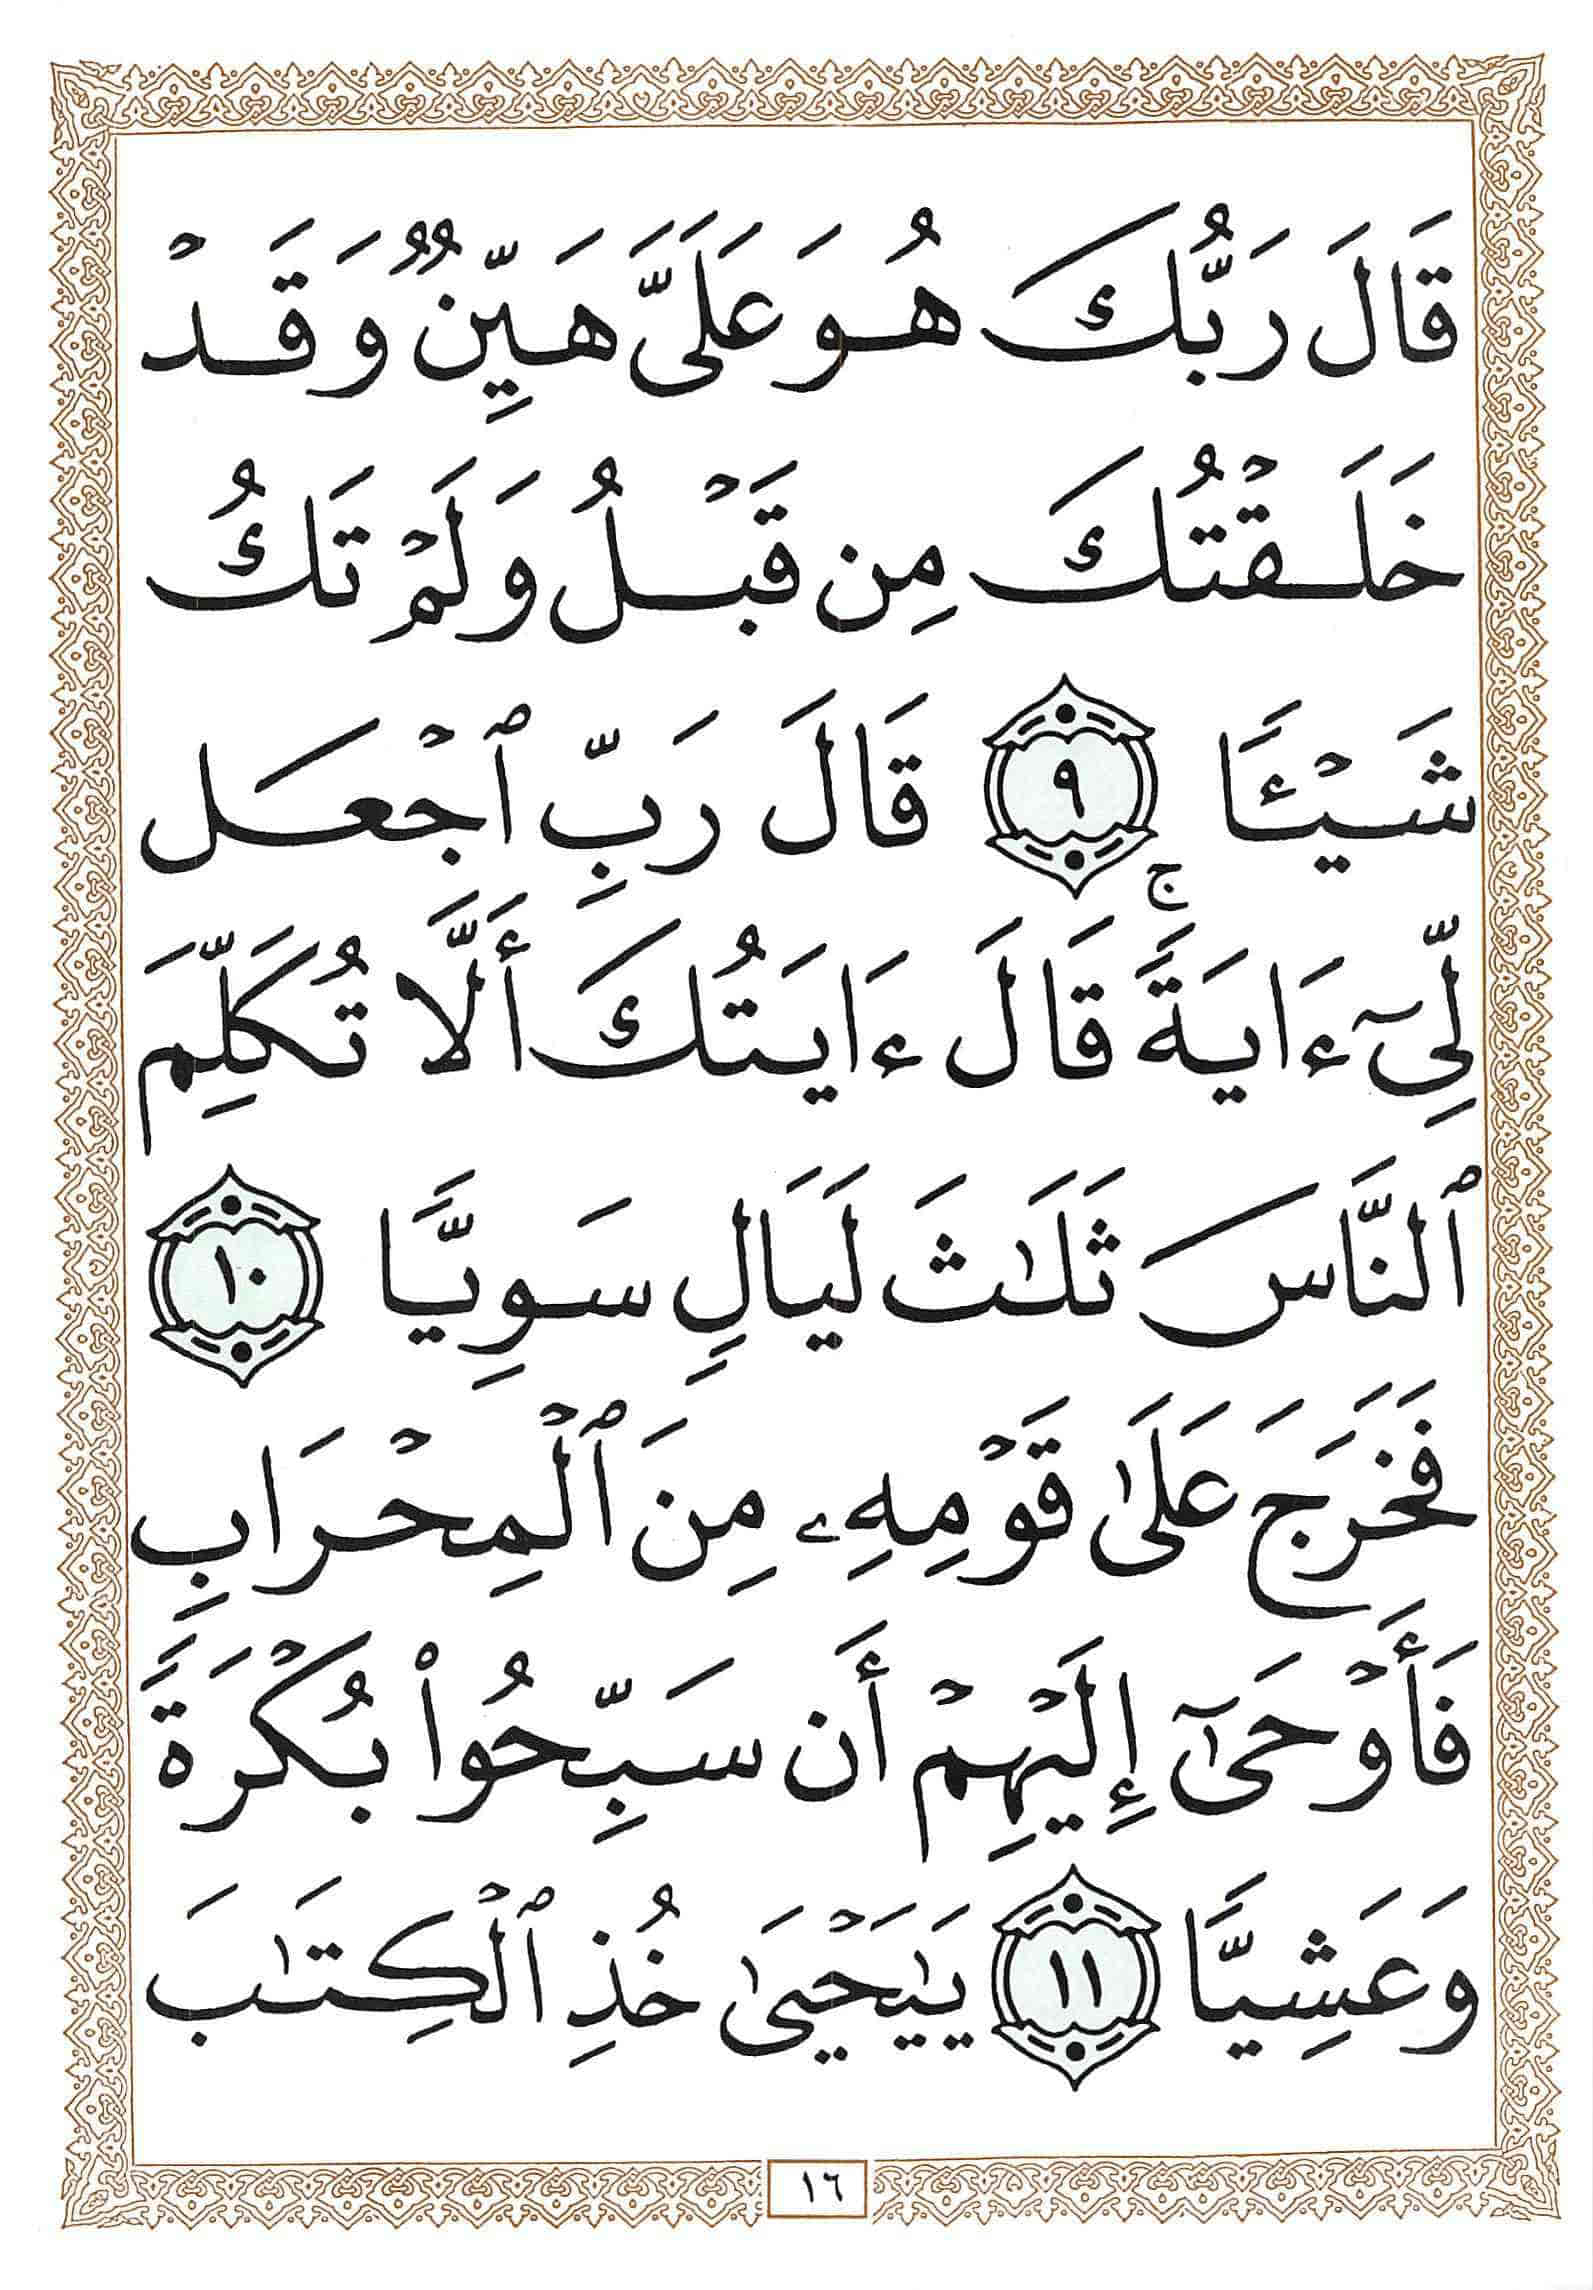 قَالَ رَبُّكَ هُوَ عَلَىَّ هَيِّنٌ وَقَدْ
خَلَقْتُكَ مِن قَبْلُ وَلَمْ تَكُ
شَيْـًٔا ٩ قَالَ رَبِّ ٱجْعَل
لِّىٓ ءَايَةً ۚ قَالَ ءَايَتُكَ أَلَّا تُكَلِّمَ
ٱلنَّاسَ ثَلَـٰثَ لَيَالٍ سَوِيًّا ١٠
فَخَرَجَ عَلَىٰ قَوْمِهِۦ مِنَ ٱلْمِحْرَابِ
فَأَوْحَىٰٓ إِلَيْهِمْ أَن سَبِّحُوا۟ بُكْرَةً
وَعَشِيًّا ١١ يَـٰيَحْيَىٰ خُذِ ٱلْكِتَـٰبَ
١٦